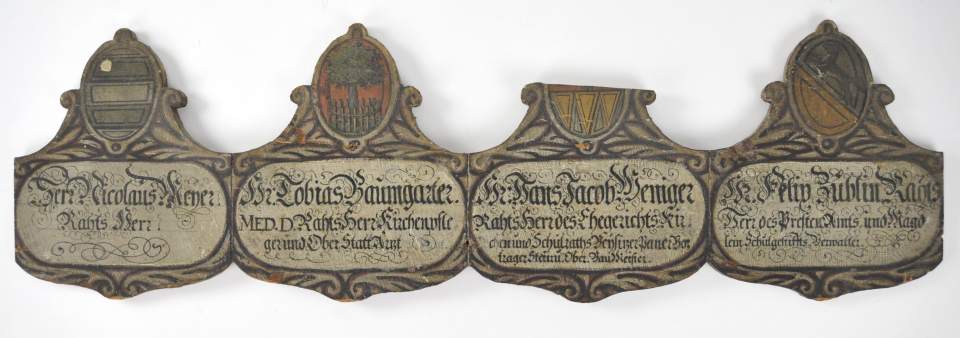 Herr Nicolaus Meyer.
Rahts Herr.
Hr. Tobias Baumgarter
MED. D. Rahts Herr Kirchenpfle
ger und Ober Statt Arzt
Hr. Hans Jacob Weniger
Rahts Herr des Ehegerichts Kir
chen und Schulraths Beysizer Paner Vor
trager Ober Bau Meister.
Hr. Felix Züblin Rahts
Herr des Presten Amts und Magd
lein Schulgerichts Verwalter.